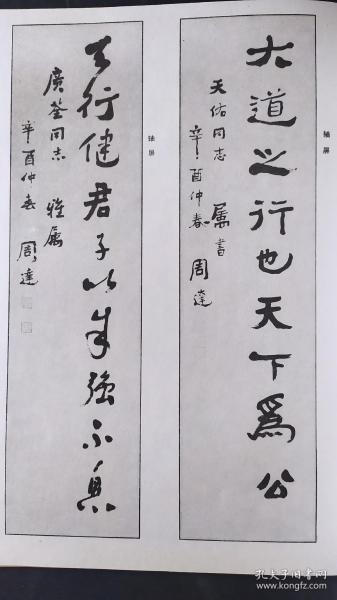 轴屏
大道之行也天下爲公
天佑同志 属书
辛酉仲春 周達
轴屏
天行健君子以自强不息
廣荃同志 雅属
辛酉仲春 周達
孔夫子旧书网
book.kongfz.com